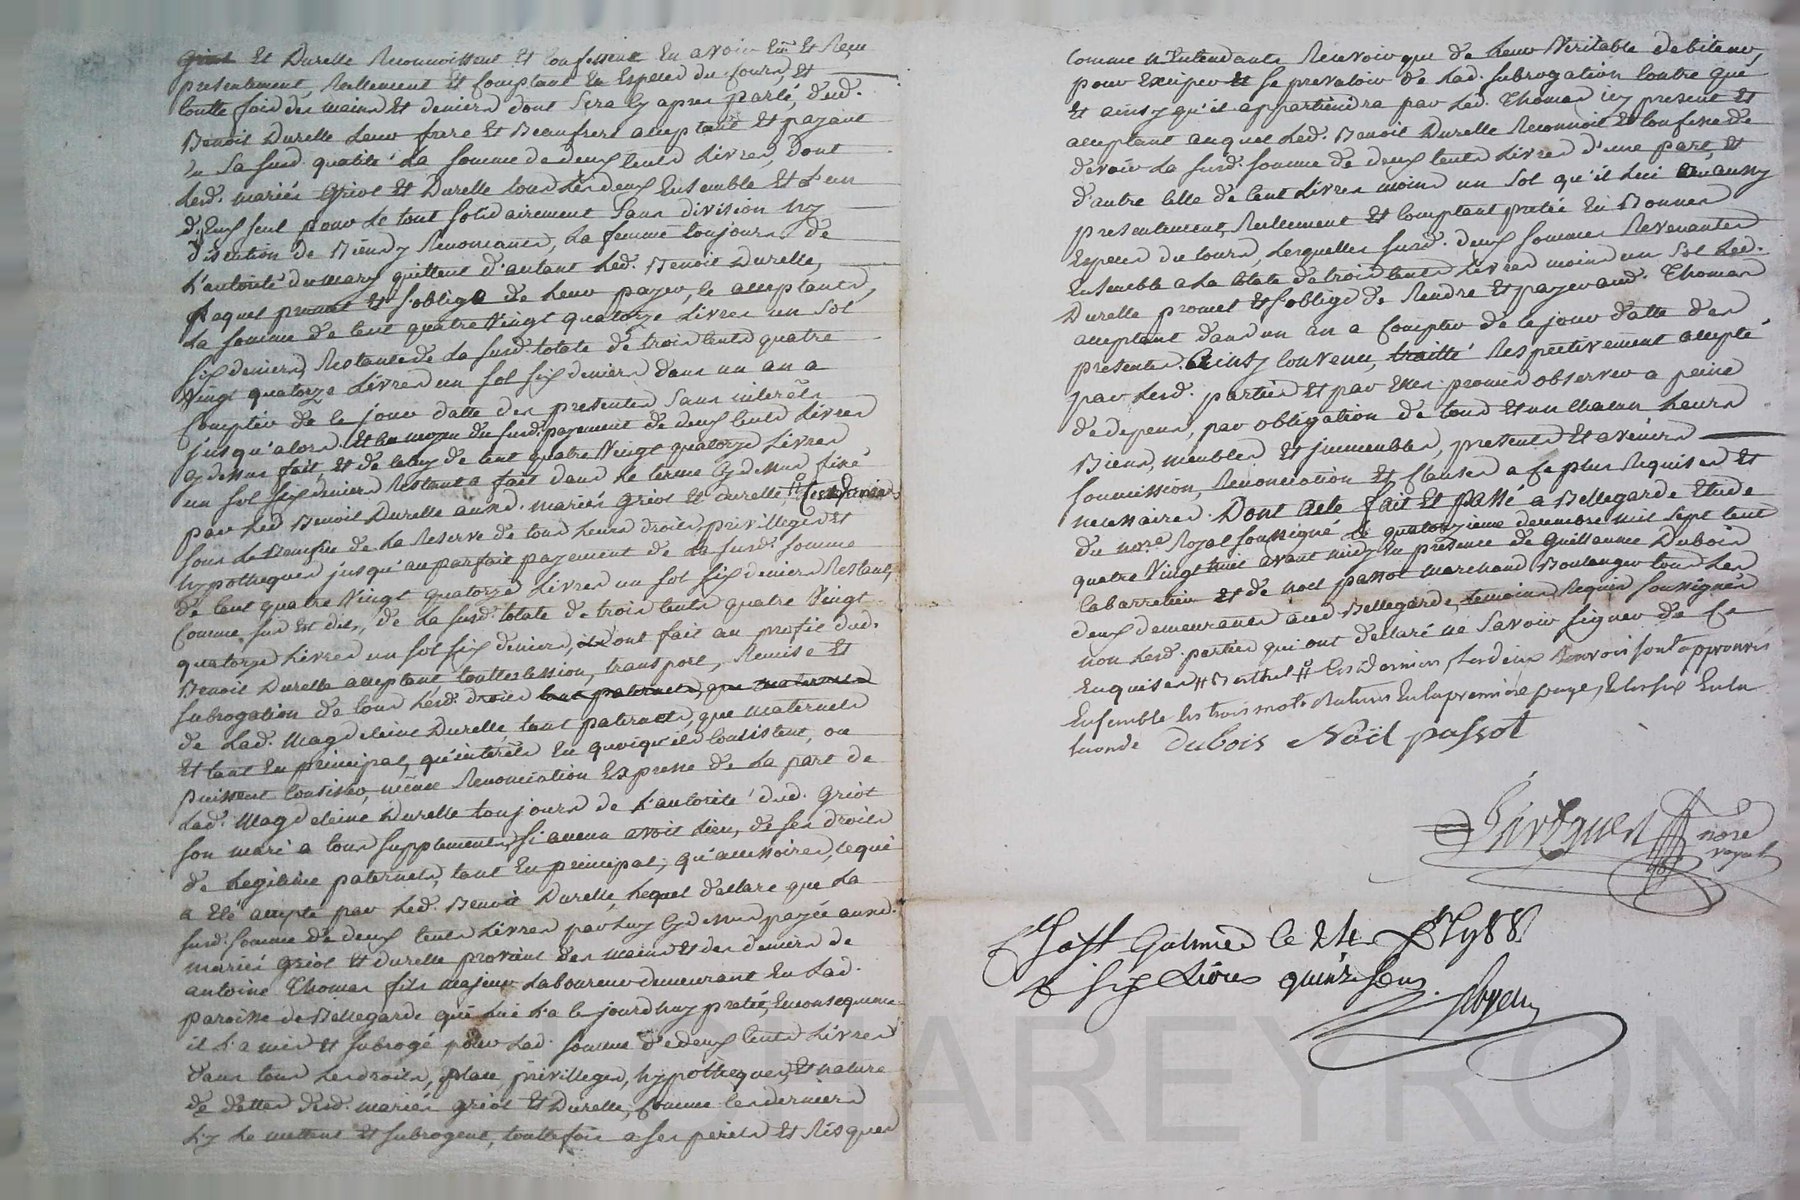 Griot Et Durelle Reconnoissent Et Confessent En avoir Eüe Et Reçu
presentement, Reellement Et Comptant En Especes du Cours Et
toutte fois des mains Et deniers dont Sera Cy apres parlé, dud.
Benoit Durelle Leur frere Et Beaufrere acceptant Et payant
En Sa Susd. qualité La Somme de deux Cents Livres, dont
Lesd. mariés Griot Et Durelle tous Les deux Ensemble Et L'un
d'Eux Seul pour Le tout Solidairement Sans division Ny
discution de Biens y Renonçants, La femme toujours de
L'autorité du mary quittent d'autant Led. Benoit Durelle,
Lequel promet Et S'oblige de Leur payer, Ce acceptants,
La Somme de Cent quatre Vingt quatorze Livres un Sol
Six deniers Restante de La Susd. totale de trois Cents quatre
Vingt quatorze Livres un Sol Six deniers dans un an a
Compter de Ce jour datte des presentes Sans interêts
jusqu'alors Et Au moyen du Susd. payement de deux Cents Livres
Cy dessus fait, Et de Celuy de Cent quatre Vingt quatorze Livres
un Sol Six deniers Restant a fait dans Le terme Cy dessus fixé
par Led. Benoit Durelle auxd. mariés Griot Et Durelle, Ces derniers
Sous La Reserve de tous Leurs droits, privilleges Et
hypotheques jusqu'au parfait payement de La Susd. Somme
de Cent quatre Vingt quatorze Livres un Sol Six deniers Restant,
Comme Sus Est dit, de La Susd. totale de trois Cents quatre Vingt
quatorze Livres un Sol Six deniers, ont fait au profit dud.
Benoit Durelle acceptant toutte Cession, transport, Remise Et
Subrogation de tous Lesd. droits tant paternels, que maternels
de Lad. Magdeleine Durelle, tant paternels, que maternels
Et tant En principal, qu'interêts En quoy qu'ils Consistent, ou
puissent Consister, même Renonciation Expresse de La part de
Lad. Magdeleine Durelle toujours de L'autorité dud. Griot
Son mari a tous Supplements, Si aucun avoit Lieu, de Ses droits
de Legitime paternels, tant En principal, qu'accessoires, Ce qui
a Eté accepté par Led. Benoit Durelle, Lequel declare que La
Susd. Somme de deux Cents Livres par Luy Cy dessus payée auxd.
mariés Griot Et Durelle provient des mains Et des deniers de
antoine Thomas fils majeur Laboureur demeurant En Lad.
paroisse de Bellegarde qui Lui L'a Ce jourd'huy pretée, En consequence
il L'a mis Et Subrogé pour Lad. Somme de deux Cents Livres
dans tous Les droits, place, privilleges, hypotheques, Et nature
de dettes desd. mariés Griot Et Durelle, Comme Ces derniers
L'y Le mettent Et Subrogent, toutte fois a Ses perils Et Risques
Comme N'Entendants Recevoir que de Leur Veritable debiteur,
pour Exciper Et Se prevaloir de Lad. Subrogation Contre qui
Et ainsy qu'il appartiendra par Led. Thomas icy present Et
acceptant auquel Led. Benoit Durelle Reconnoit Et Confesse de
devoir La Susd. Somme de deux Cents Livres d'une part, Et
d'autre Celle de Cent Livres moins un Sol qu'il Lui a aussy
presentement, Reellement Et Comptant pretée En Bonnes
Especes du Cours, Lesquelles Susd. deux Sommes Revenantes
Ensemble a La totale de trois Cents Livres moins un Sol Led.
Durelle promet Et S'oblige de Rendre Et payer aud. Thomas
acceptant dans un an a Compter de Ce jour datte des
presentes. Ainsy Convenu, traitté Respectivement accepté
par Lesd. parties Et par Elles promis observer a peine
de depens, par obligation de tous Et un Chacun Leurs
Biens, meubles Et jmmeubles, presents Et avenirs
Soumission, Renonciation Et Clauses a Ce plus Requises Et
necessaires. Dont Acte fait Et Passé a Bellegarde Etude
du nore. Royal Soussigné Le quatorzieme decembre mil Sept Cent
quatre Vingt huit avant midy En presence de Guillaume Dubois
Cabarretier Et de Noel passot Marchand Boulanger tous Les
deux demeurants aud. Bellegarde, temoins Requis Soussignés
non Lesd. parties qui ont declaré ne Savoir Signer de Ce
Enquises Ces derniers, Les deux Renvois Sont approuvés
Ensemble Les trois mots Ratures En La premiere page, Et Les Six En La
Seconde Dubois Noël passot
nore
royal
à St Galmier le 24
Six Livres quinze Sous.
CHAREYRON